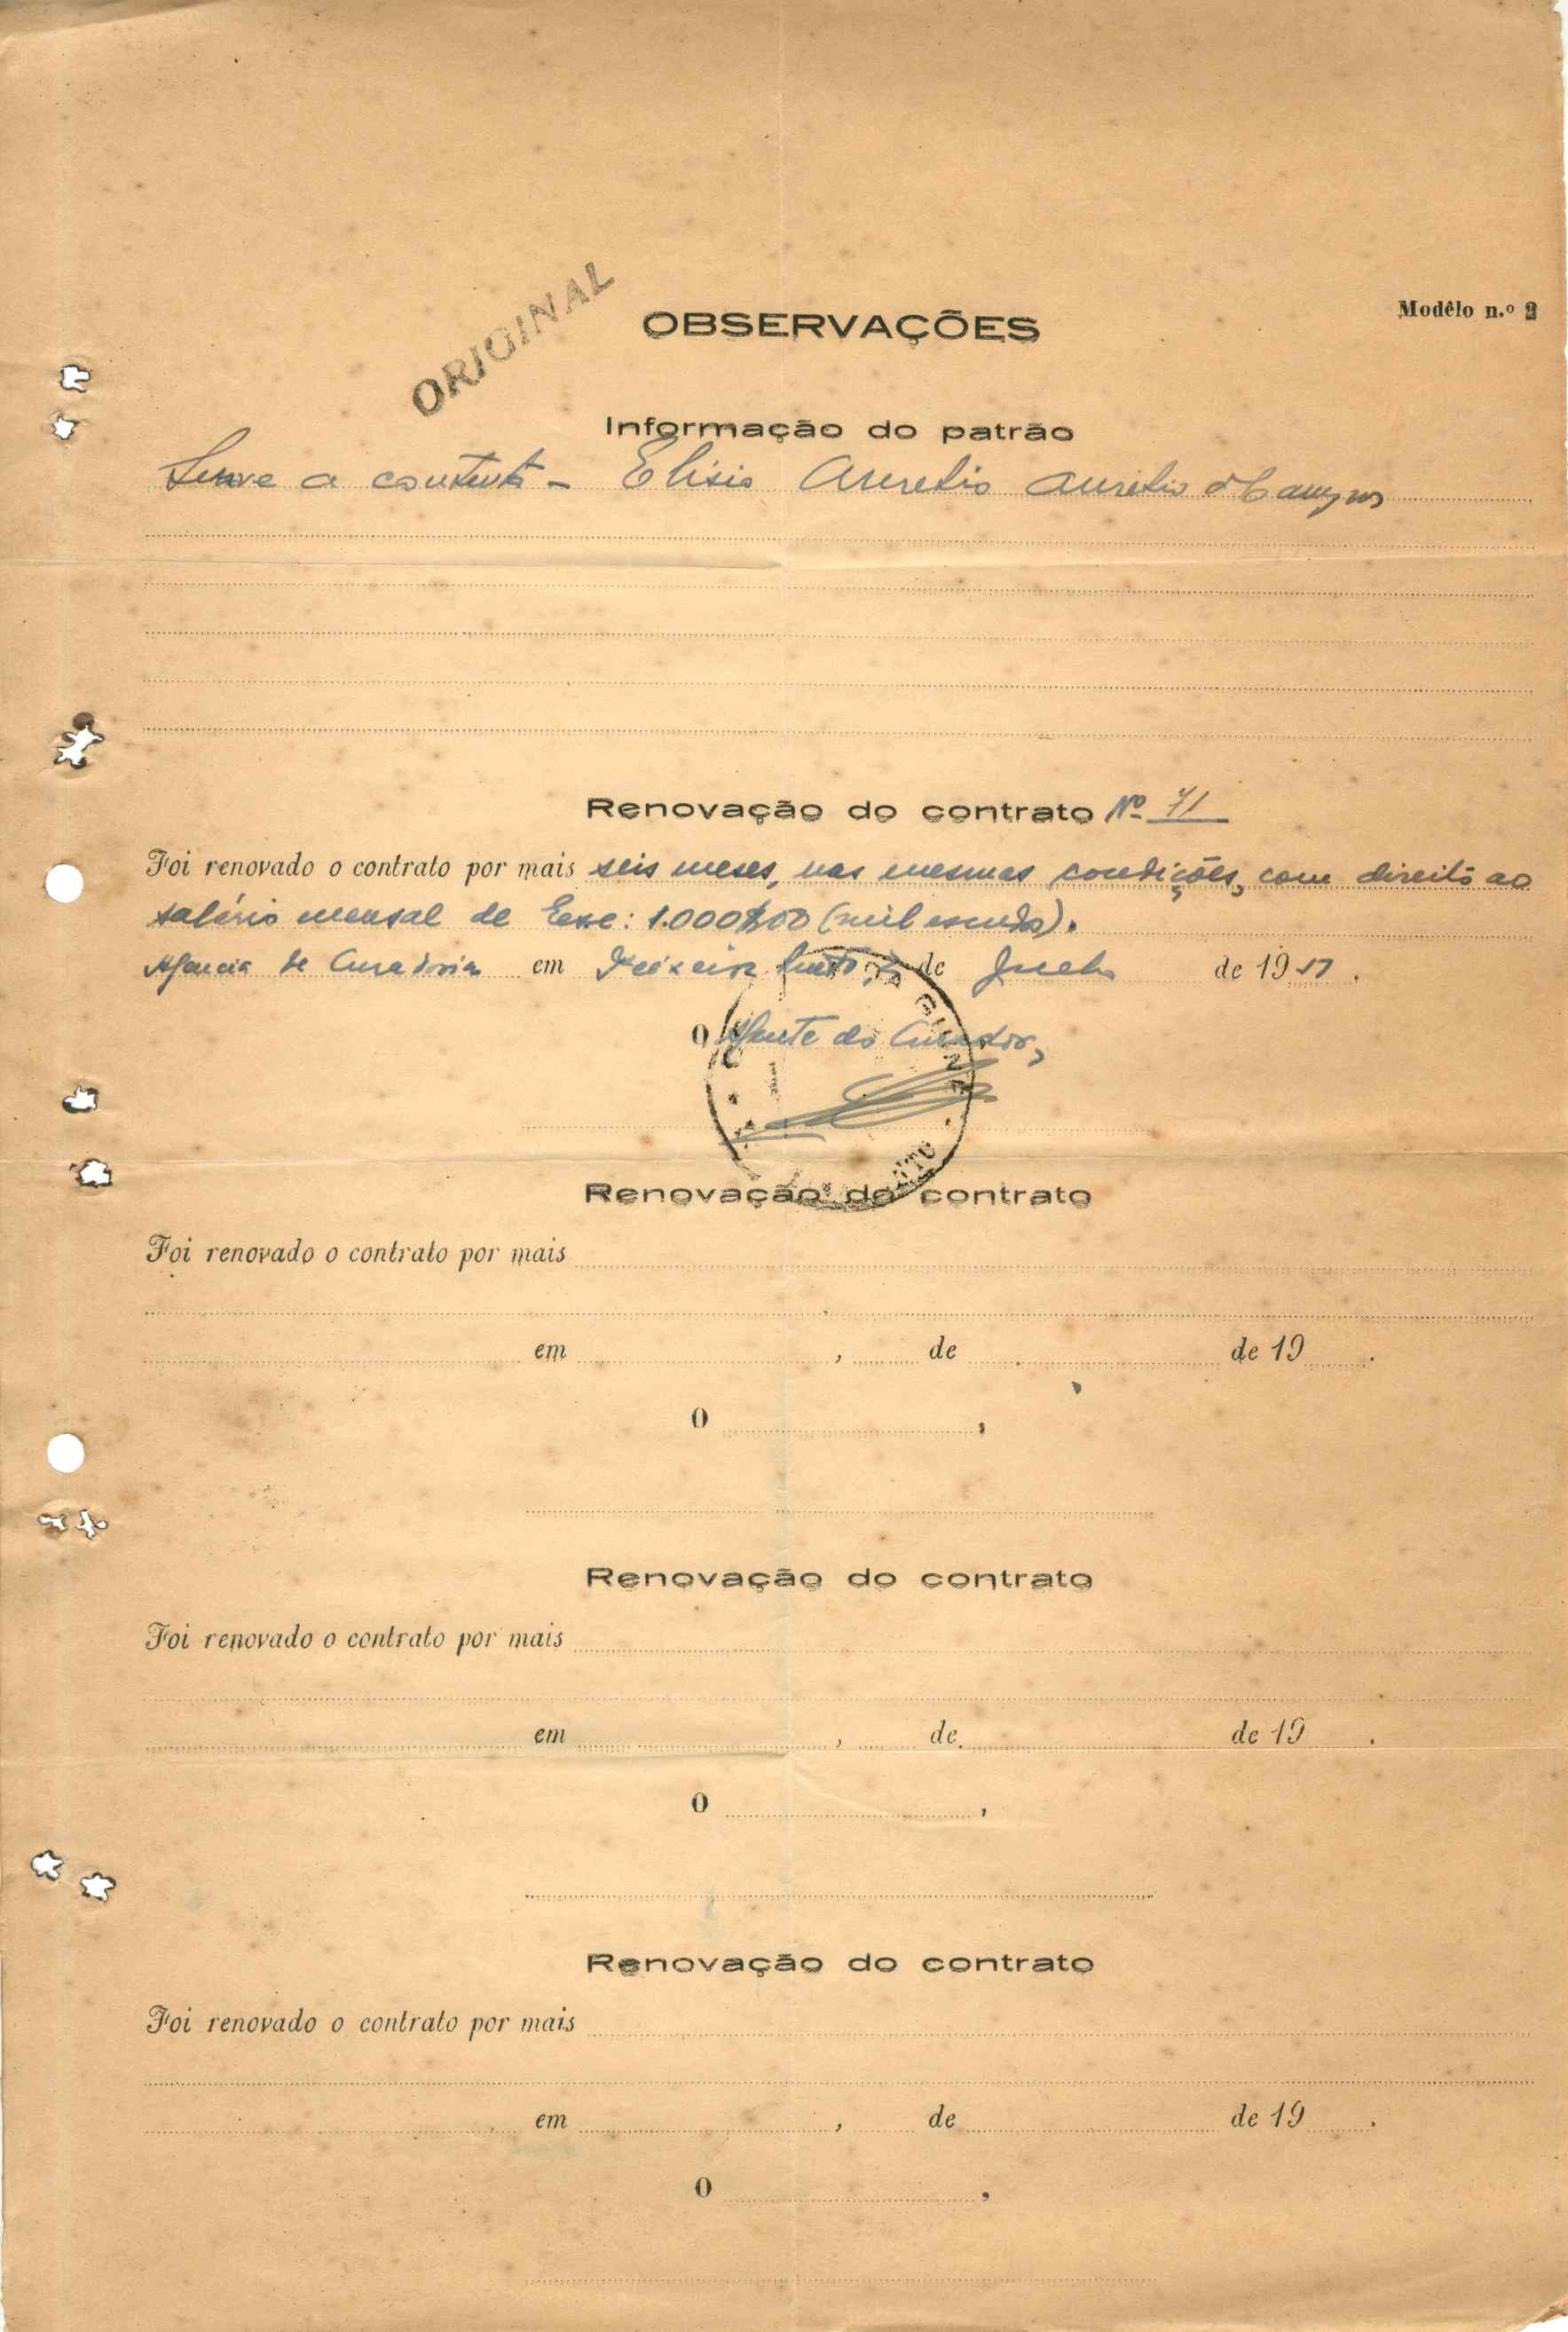 ORIGINAL
OBSERVAÇÕES
Modêlo n.º 2
Informação do patrão
Serve a contento - Elisio Aurelio Aurelio d'Campos
Renovação do contrato Nº 71
Foi renovado o contrato por mais seis meses, nas mesmas condições, com direito ao
salário mensal de Esc: 1.000$00 (mil escudos).
Agencia de Curadoria em Teixeira Pinto, de de 19
O Agente do Curador,
Renovação do contrato
Foi renovado o contrato por mais
em , de de 19 .
O ,
Renovação do contrato
Foi renovado o contrato por mais
em , de de 19 .
O ,
Renovação do contrato
Foi renovado o contrato por mais
em , de de 19 .
O ,